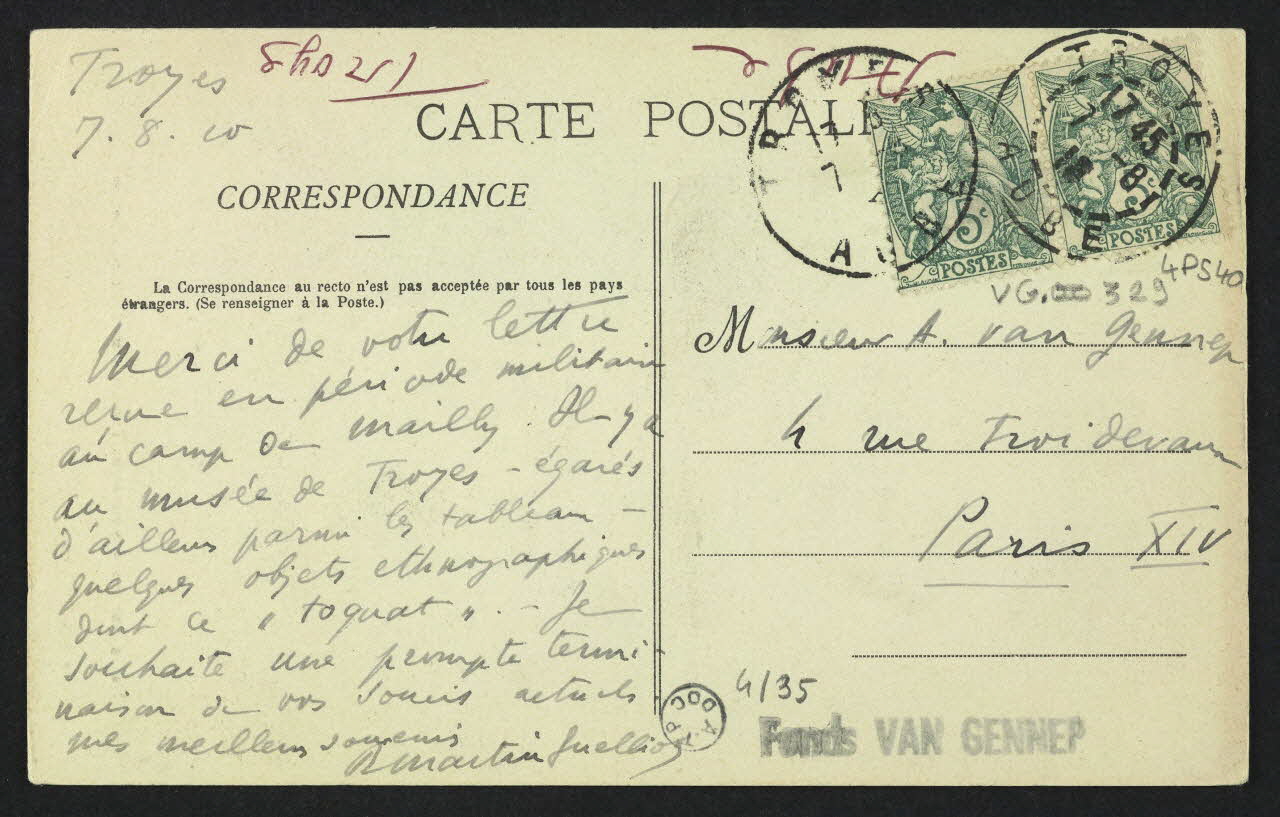 Troyes
7. 8. 10
CARTE POSTALE
CORRESPONDANCE
La Correspondance au recto n'est pas acceptée par tous les pays
étrangers. (Se renseigner à la Poste.)
Merci de votre lettre
reçue en période militaire
au camp de Mailly. Il y a
au musée de Troyes - égarés
d'ailleurs parmi les tableaux -
quelques objets ethnographiques
dont ce " toquat ". - Je
souhaite une prompte termi-
naison de vos soucis actuels.
mes meilleurs souvenirs
R Martin Guelliot
TROYES
AUBE
5c
POSTES
TROYES
17 45
7 - 8
10
AUBE
5c
POSTES
4PS40
VG. 329
Monsieur A. van Gennep
4 rue Froidevaux
Paris XIV
4/35
DOC A.T.P
Fonds VAN GENNEP